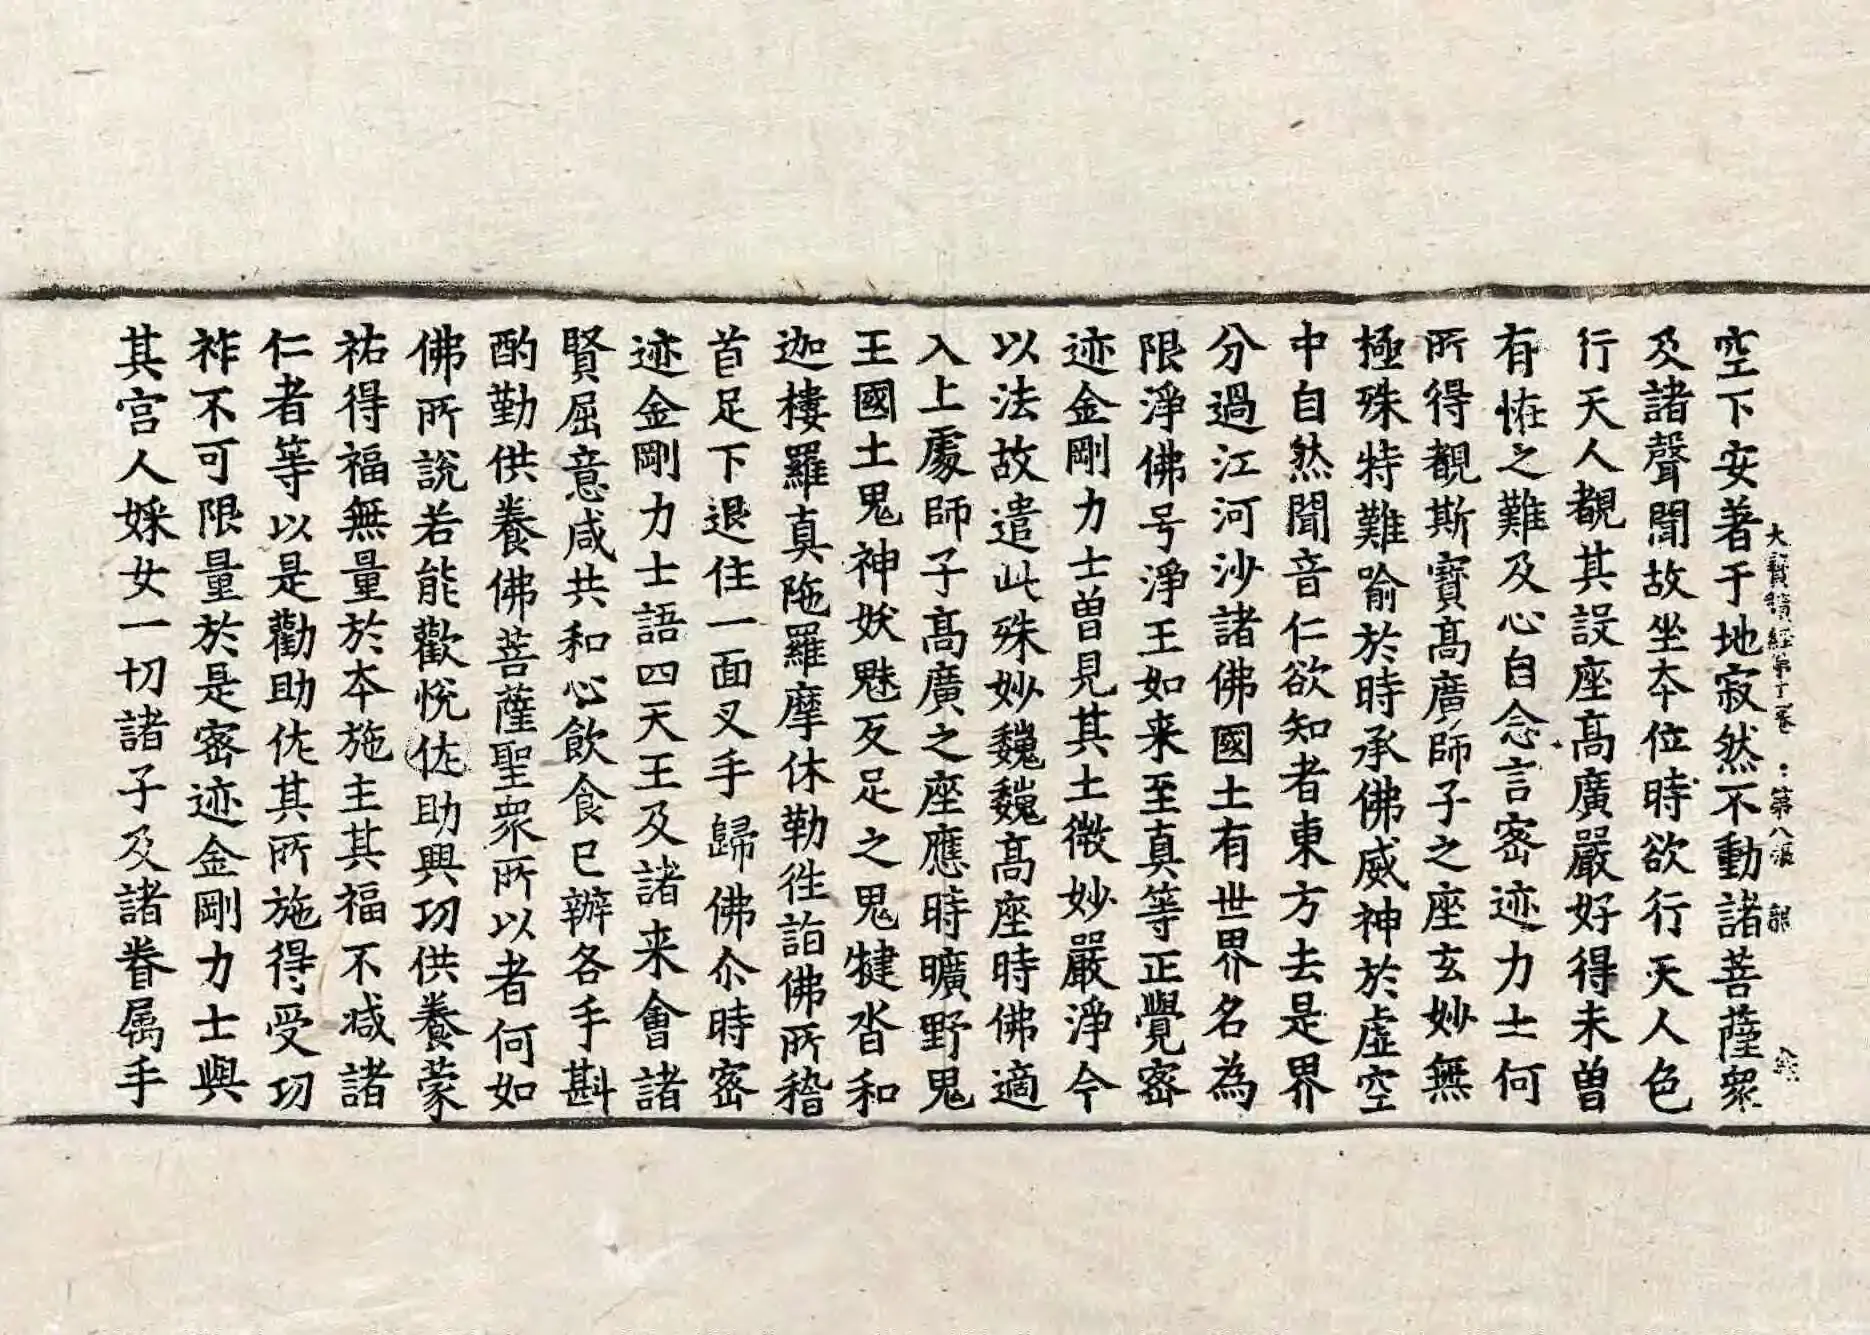 大寶積經第十卷 第八張
空下安著于地寂然不動諸菩薩衆
及諸聲聞故坐夲位時欲行天人色
行天人覩其設座高廣嚴好得未曾
有恠之難及心自念言密迹力士何
所得覩斯寶高廣師子之座玄妙無
極殊特難喻於時承佛威神於虛空
中自然聞音仁欲知者東方去是界
分過江河沙諸佛國土有世界名為
限淨佛号淨王如来至真等正覺密
迹金剛力士曽見其土微妙嚴淨今
以法故遣此殊妙巍巍高座時佛適
入上處師子高廣之座應時曠野鬼
王國土鬼神妖魅及足之鬼犍沓和
迦樓羅真陁羅摩休勒徃詣佛所稽
首足下退住一面叉手歸佛尒時密
迹金剛力士語四天王及諸来會諸
賢屈意咸共和心飲食已辦各手斟
酌勤供養佛菩薩聖衆所以者何如
佛所說若能歡悅佐助興功供養蒙
祐得福無量於夲施主其福不減諸
仁者等以是勸助佐其所施得受功
祚不可限量於是密迹金剛力士與
其宮人婇女一切諸子及諸眷属手